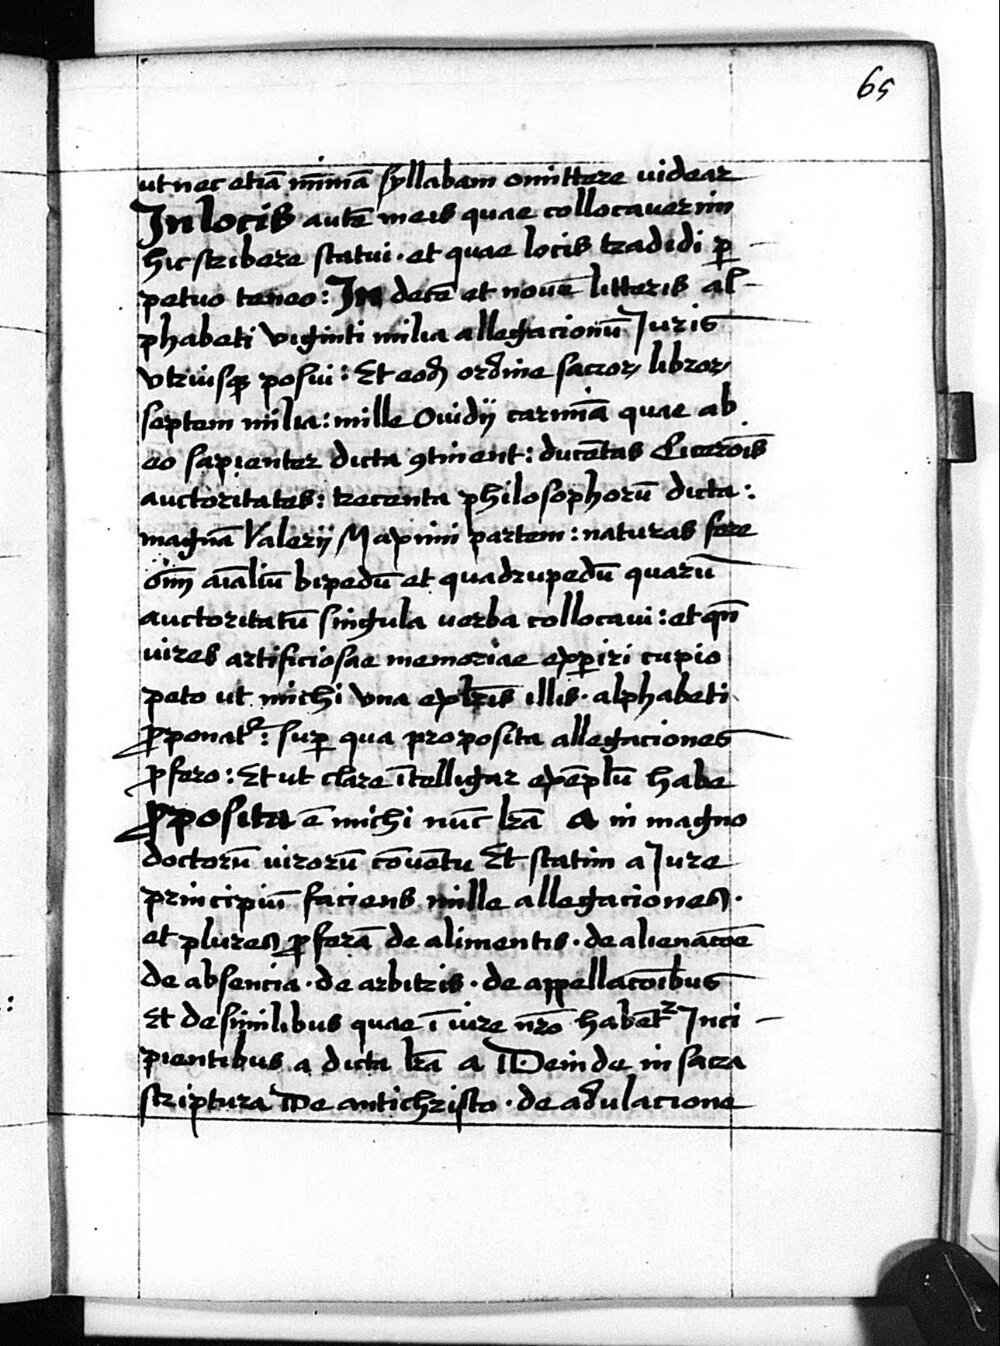 65
ut nec etiā mīimā syllabam omittere videar
In locis autē meis quae collocaverim
hic scribere statui · et quae locis tradidi ꝑ
petuo teneo : In decē et novē litteris al-
phabeti viginti milia allegacionū Juris
vtriusqꝫ posui : Et eodꝫ ordine sacroꝝ libroꝝ
septem milia : mille Ovidij carmīa quae ab
eo sapienter dicta ꝯtinent : ducētas Cicerōis
auctoritates : trecenta philosophorū dicta :
magnā Valerij Maximi partem : naturas fere
oīm aīaliū bipedū et quadrupedū quarū
auctoritatū singula verba collocavi : et qn̄
vires artificiosae memoriae exꝑiri cupio
peto ut michi vna ex lr̄is illis · alphabeti
ꝓponatᷣ : suꝑ qua proposita allegaciones
ꝓfero : Et ut clare ītelligar exēplū habe
ꝓposita ē michi nūc lr̄a a in magno
doctorū virorū cōventu Et statim a Jure
principiū faciens mille allegaciones ·
et plures ꝓferā de alimentis · de alienacōe
de absencia · de arbitris · de appellacōibus
Et de similibus quae ī iure nr̄o habētᷣ Inci
pientibus a dicta lr̄a a Deinde in sacra
scriptura De antichristo · de adulacione